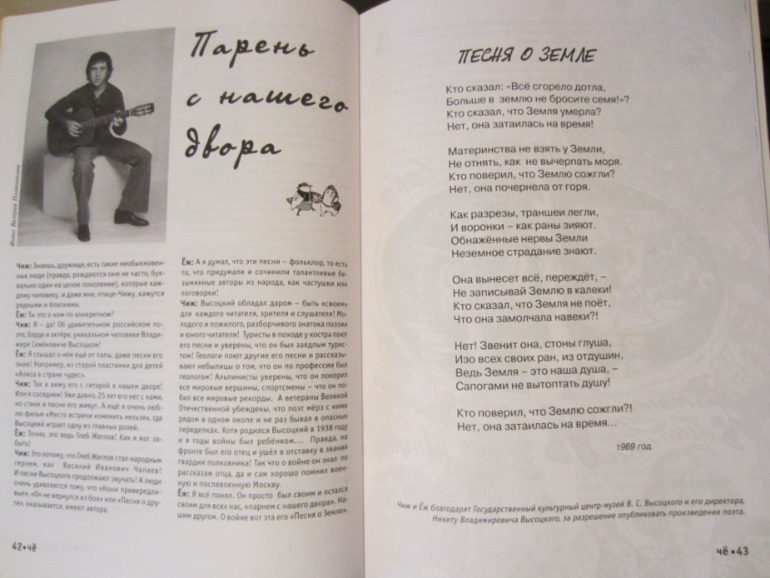 Парень
с нашего
двора
Фото Валерия Плотникова
Чиж: Знаешь, дружище, есть такие необыкновен-
ные люди (правда, рождаются они не часто, бук-
вально один на целое поколение), которые каж-
дому человеку, и даже мне, птице-Чижу, кажутся
родными и близкими.
Ёж: Ты это о ком-то конкретном?
Чиж: Я – да! Об удивительном российском по-
эте, барде и актёре, уникальном человеке Влади-
мире Семёновиче Высоцком!
Ёж: Я слышал о нём ещё от папы, даже песни его
знаю! Например, из старой пластинки для детей
«Алиса в стране чудес».
Чиж: Так и вижу его с гитарой в нашем дворе!
Или в соседнем! Уже давно, 25 лет его нет с нами,
но стихи и песни его живут. А ещё я очень люб-
лю фильм «Место встречи изменить нельзя», где
Высоцкий играет одну из главных ролей.
Ёж: Точно, это ведь Глеб Жеглов! Как я мог за-
быть!
Чиж: Это потому, что Глеб Жеглов стал народным
героем, как Василий Иванович Чапаев!
И песни Высоцкого продолжают звучать! А люди
очень удивляются тому, что «Кони привередли-
вые», «Он не вернулся из боя» или «Песня о дру-
ге», оказывается, имеют автора.
Ёж: А я думал, что эти песни – фольклор, то есть
то, что придумали и сочинили талантливые бе-
зымянные авторы из народа, как частушки или
поговорки!
Чиж: Высоцкий обладал даром – быть «своим»
для каждого читателя, зрителя и слушателя! Мо-
лодого и пожилого, разборчивого знатока поэзии
и юного читателя! Туристы в походе у костра поют
его песни и уверены, что он был заядлым турис-
том! Геологи поют другие его песни и рассказы-
вают небылицы о том, что он по профессии был
геологом! Альпинисты уверены, что он покорил
все мировые вершины, спортсмены – что он по-
бил все мировые рекорды. А ветераны Великой
Отечественной убеждены, что поэт мёрз с ними
рядом в одном окопе и не раз бывал в опасных
переделках. Хотя родился Высоцкий в 1938 году
и в годы войны был ребёнком... Правда, на
фронте был его отец и ушёл в отставку в звании
гвардии полковника! Так что о войне он знал по
рассказам отца, да и сам хорошо помнил воен-
ную и послевоенную Москву.
Ёж: Я всё понял. Он просто был своим и остался
своим для всех нас, «парнем с нашего двора». На-
шим другом. О войне вот эта его «Песня о Земле».
42•чё
ПЕСНЯ О ЗЕМЛЕ
Кто сказал: «Всё сгорело дотла,
Больше в землю не бросите семя!»?
Кто сказал, что Земля умерла?
Нет, она затаилась на время!
Материнства не взять у Земли,
Не отнять, как не вычерпать моря.
Кто поверил, что Землю сожгли?
Нет, она почернела от горя.
Как разрезы, траншеи легли,
И воронки – как раны зияют.
Обнажённые нервы Земли
Неземное страдание знают.
Она вынесет всё, переждёт, –
Не записывай Землю в калеки!
Кто сказал, что Земля не поёт,
Что она замолчала навеки?!
Нет! Звенит она, стоны глуша,
Изо всех своих ран, из отдушин,
Ведь Земля – это наша душа, –
Сапогами не вытоптать душу!
Кто поверил, что Землю сожгли?!
Нет, она затаилась на время...
1969 год
Чиж и Ёж благодарят Государственный культурный центр-музей В. С. Высоцкого и его директора,
Никиту Владимировича Высоцкого, за разрешение опубликовать произведения поэта.
чё •43